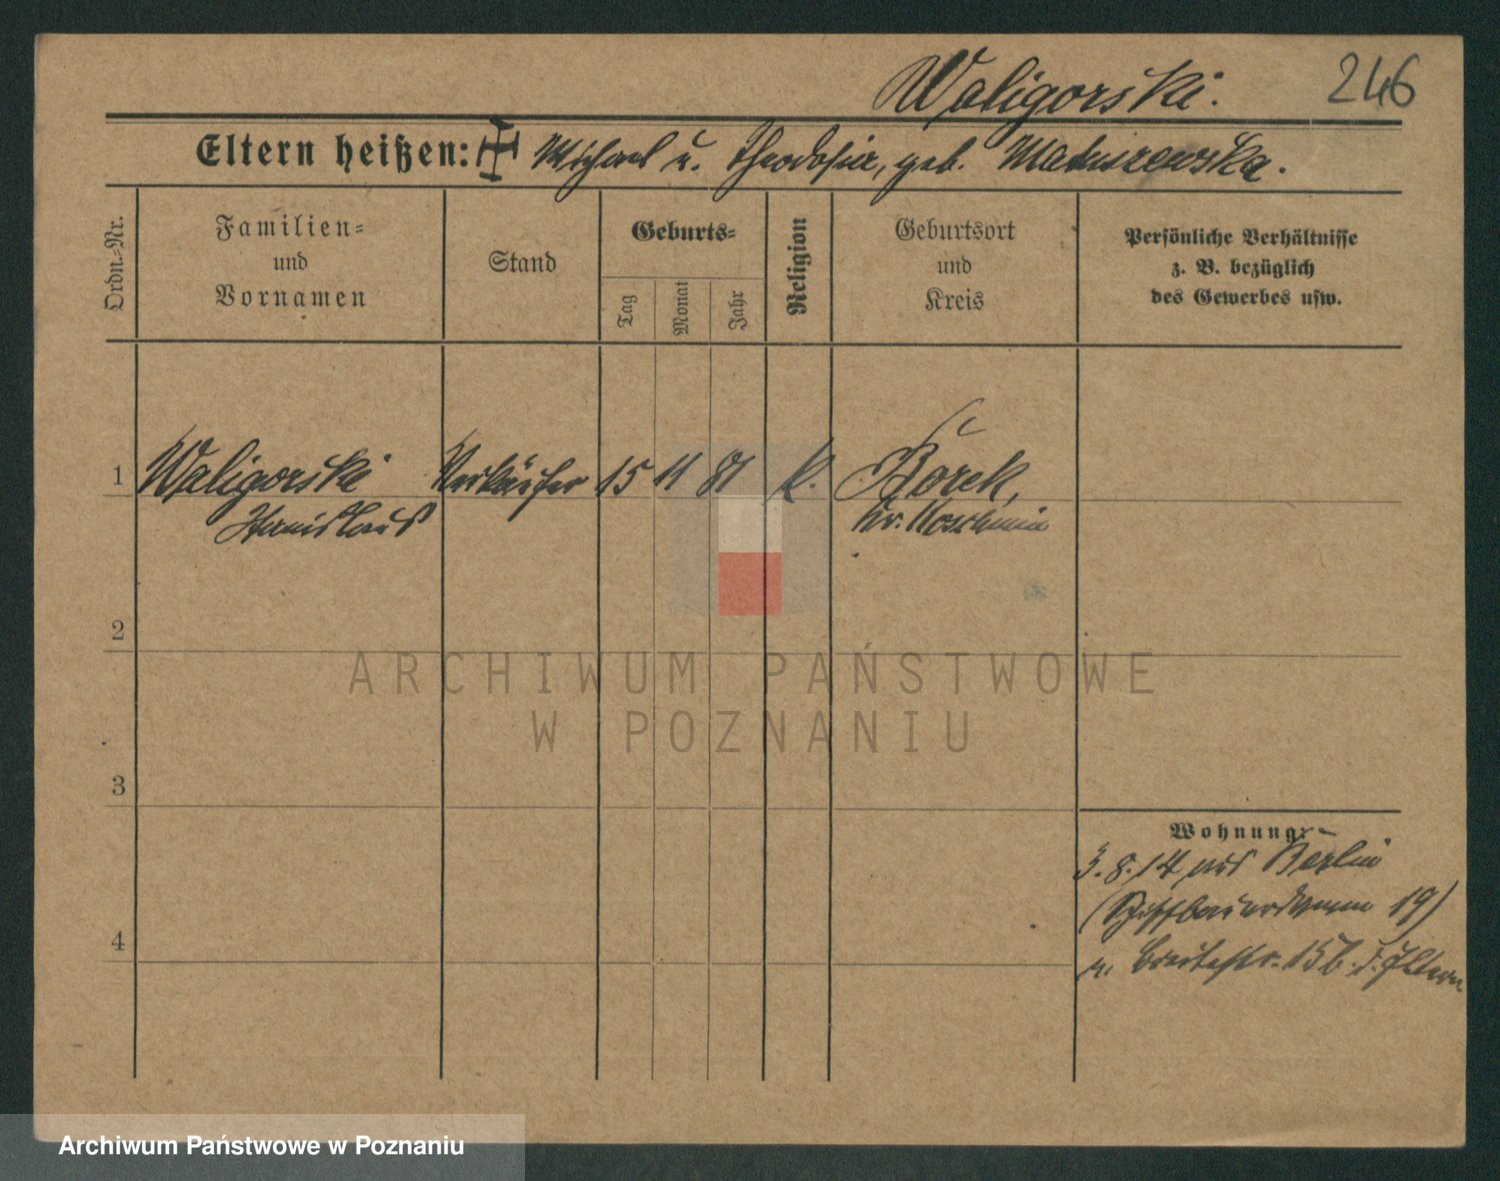 Waligorski. 246
Eltern heißen: Michael u. Theodosia, geb. Matuszewska.
Ordn.-Nr.
Familien-
und
Vornamen
Stand
Geburts-
Tag
Monat
Jahr
Religion
Geburtsort
und
Kreis
Persönliche Verhältnisse
z. B. bezüglich
des Gewerbes usw.
1 Waligorski Verkäufer 15 11 81 k. Borek,
Stanislaus Kr. Koschmin
2
3
4
Wohnung:
3.8.14 aus Berlin
(Schiffbauerdamm 19)
n. Breitestr. 15 b. d. Eltern
ARCHIWUM PAŃSTWOWE
W POZNANIU
Archiwum Państwowe w Poznaniu